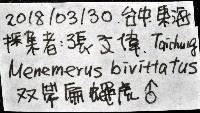 2018/03/30 台中東海
採集者:張文偉, Taichung
Menemerus bivittatus
双帶扁蠅虎♂